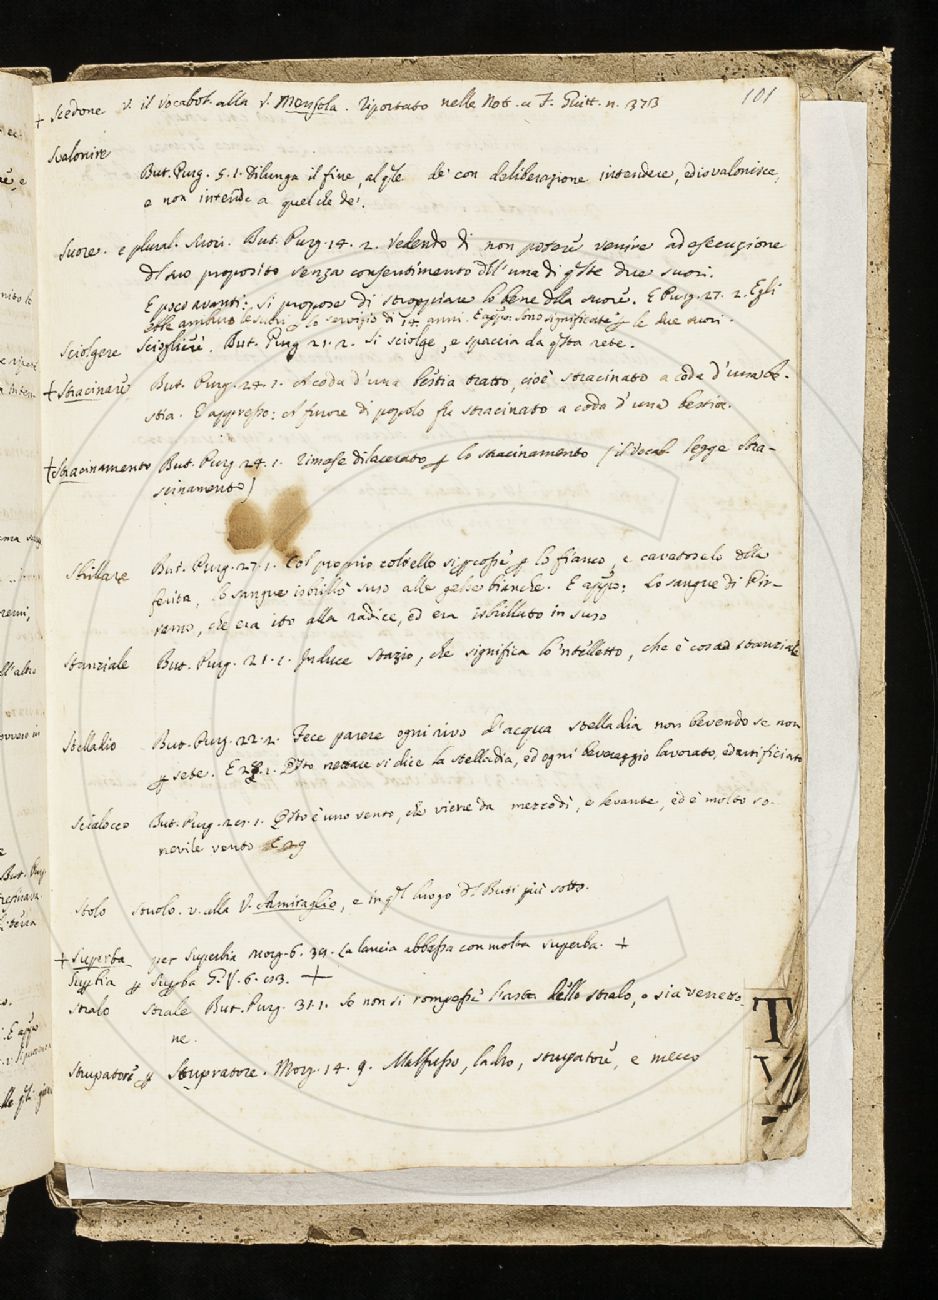 101
+ Scedone v. il Vocabol. alla V. Mensola. riportato nelle Not. a F. Guitt. n. 373
Svalorire
But. Purg. 5. 1. Dilunga il fine, al qle de' con deliberazione intendere, ed isvalorisce,
e non intende a quel che de'.
Suore. e plural. Suori. But. Purg. 14. 2. Vedendo di non potere venire ad esecuzione
dl suo proposito senza consentimento dll'una di qste due suori.
E poco avanti: si propose di stroppiare lo bene dlla suore. E Purg. 27. 2. Egli
ebbe amburo le suori p lo servizio di 14 anni. E appo. sono significate p le due suori.
Sciolgere Sciogliere. But. Purg. 21. 2. Si sciolge, e spaccia da qsta rete.
+ Stracinare But. Purg. 24. 1. A coda d'una bestia tratto, cioè stracinato a coda d'una be-
stia. E appresso: A furore di popolo fu stracinato a coda d'una bestia.
+ Stracinamento But. Purg. 24. 1. Rimase dilacerato p lo stracinamento (il Vocab. legge stra-
scinamento)
Sbrillare But. Purg. 27. 1. Col proprio coltello si pcosse p lo fianco, e cavatoselo dlla
ferita, lo sangue isbrillò suso alle gelse bianche. E appo: Lo sangue di Pir-
ramo, che era ito alla radice, ed era isbrillato in suso
Stanziale But. Purg. 21. 1. Induce Stazio, che significa lo 'ntelletto, che è cosa stanziale
Stelladio But. Purg. 22. 2. Fece parere ogni rivo d'acqua stelladia non bevendo se non
p sete. E 28. 1. Qsto nettare si dice la stelladia, ed ogni beveraggio lavorato, ed artificiato
Scialocco But. Purg. 28. 1. Qsto è uno vento, che viene da mezzodì, e levante, ed è molto so-
nevile vento
Stolo Stuolo. v. alla V. Amiraglio, e in ql luogo dl Buti più sotto.
+ Superba per Superbia Morg. 6. 39. La lancia abbassa con molta superba. +
Supbia p Supba G. V. 6. +
Stralo Strale But. Purg. 31. 1. Se non si rompesse l'asta dello stralo, o sia verretto-
ne.
Strupatore p Stupratore. Morg. 14. 9. Malfusso, ladro, strupatore, e mecco
T
V